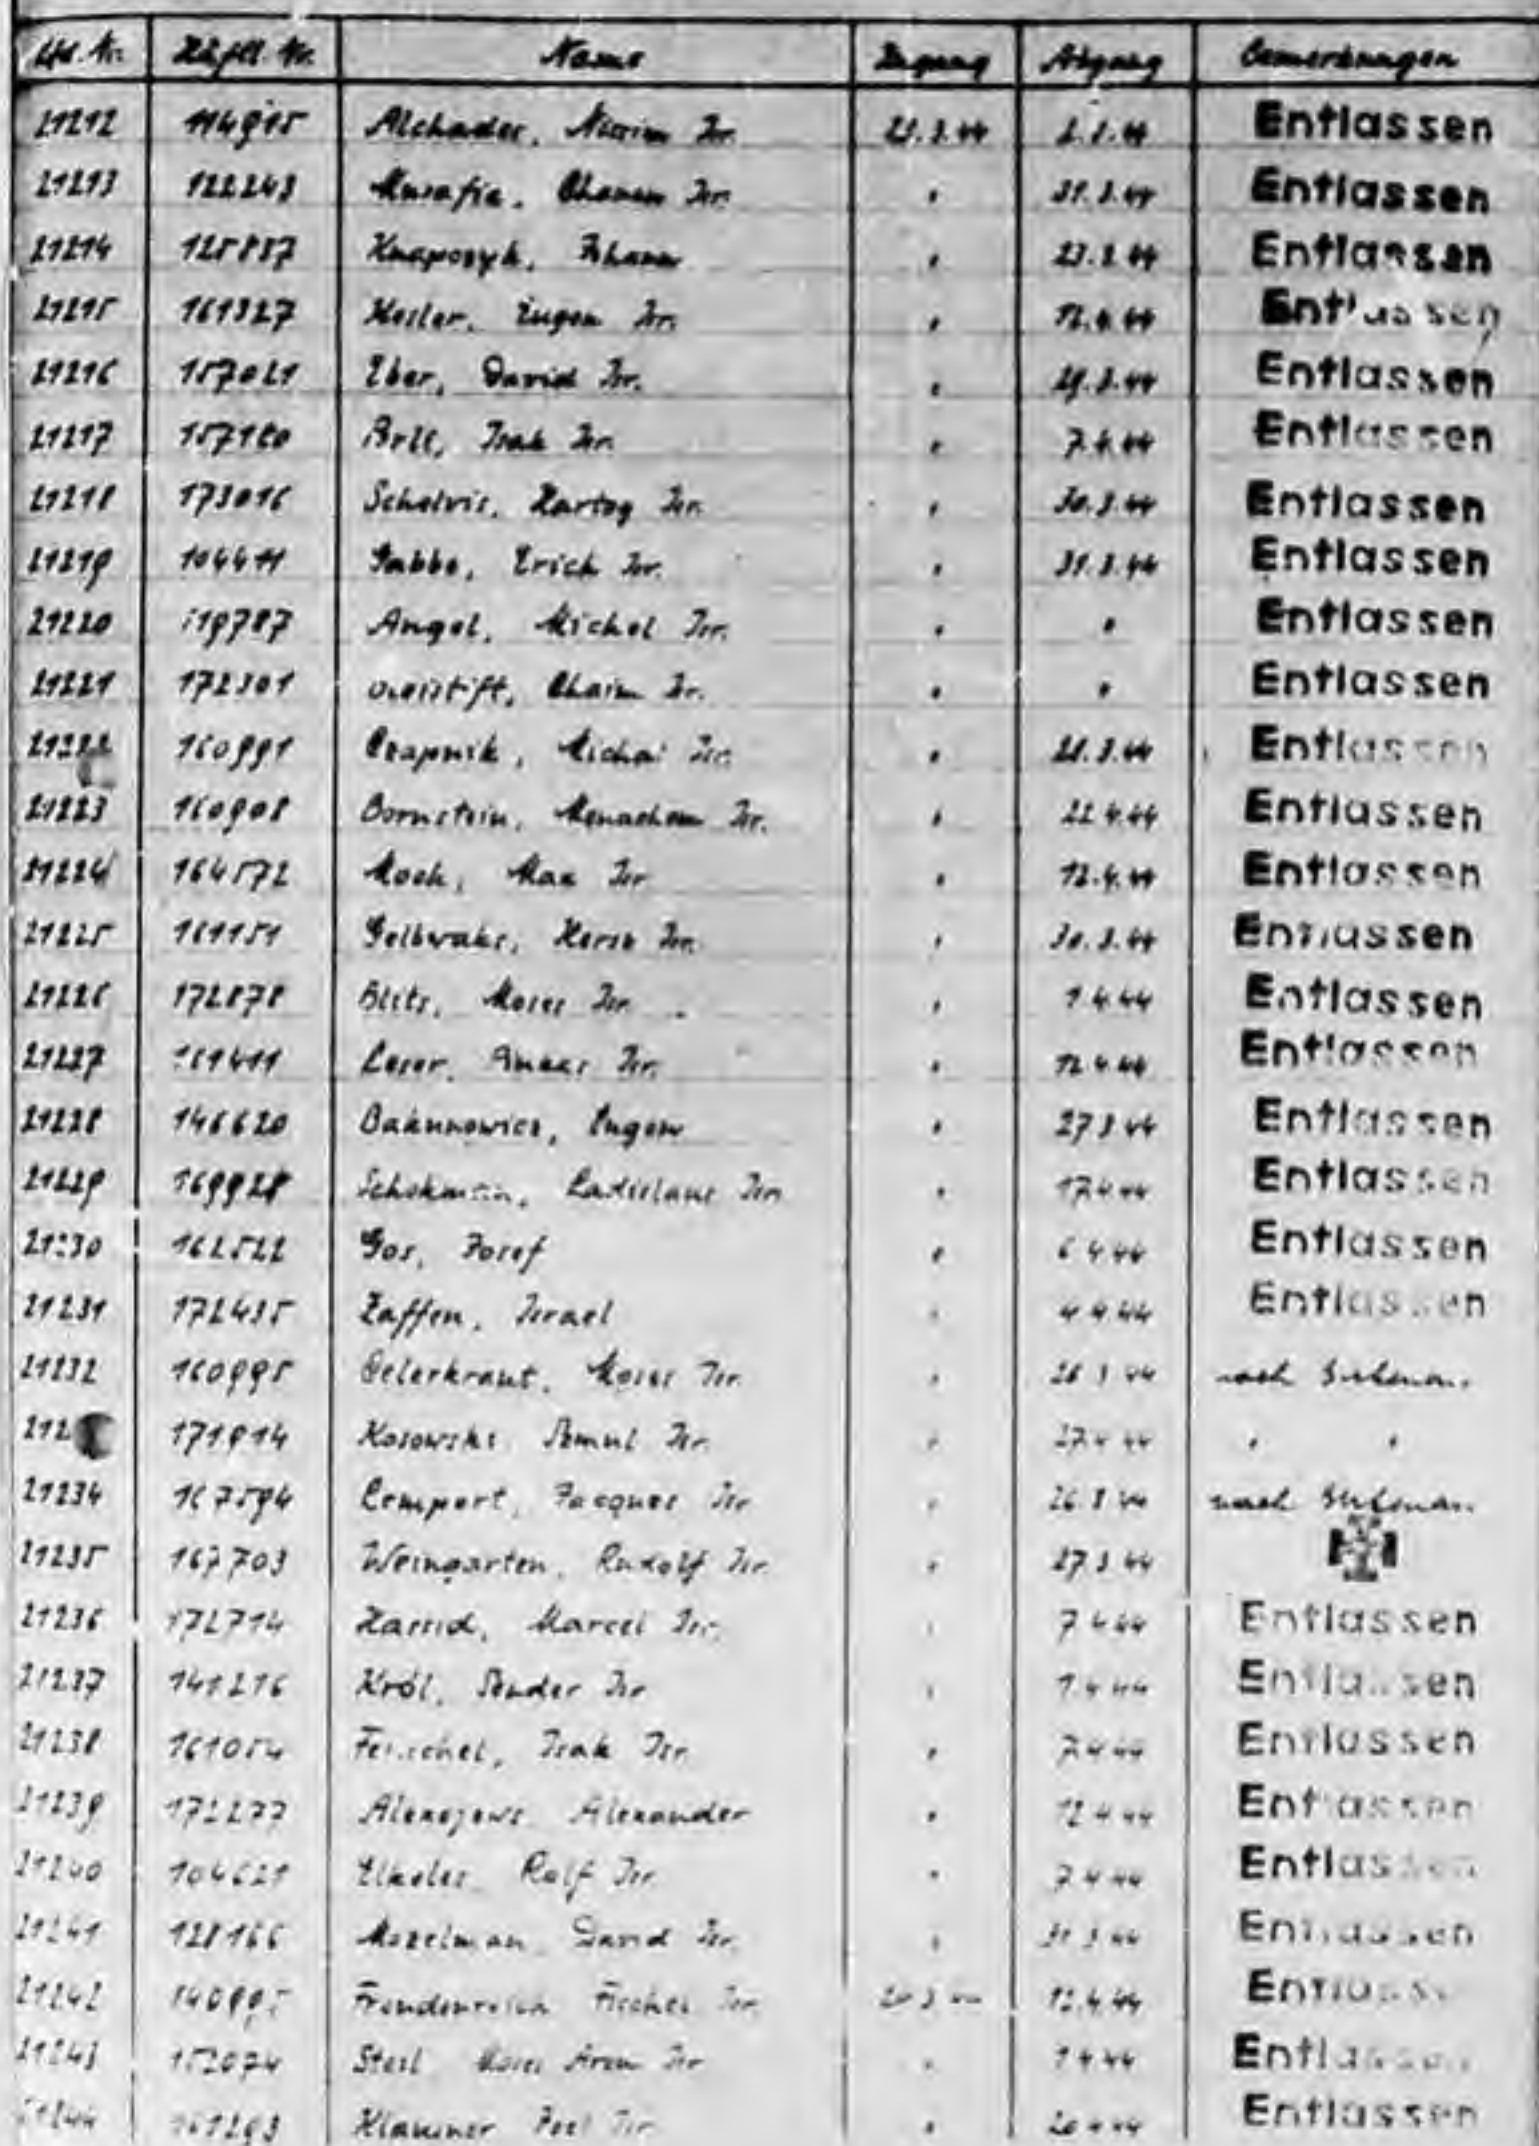 Lfd. Nr. Häftl. Nr. Name Zugang Abgang Bemerkungen
21212 114915 Alchadef, Nissim Isr. Entlassen
21213 122243 Musafia, Isr. " 31.3.44 Entlassen
21214 Johann " 23.3.44 Entlassen
21215 161327 Eugen Isr. " 12.4.44 Entlassen
21216 157021 Eber, David Isr. " 29.3.44 Entlassen
21217 Isak Isr. " 7.4.44 Entlassen
21218 173016 Schelvis, Hartog Isr. " 30.3.44 Entlassen
21219 104411 Gabbe, Erich Isr. " 31.3.44 Entlassen
21220 119787 Angel, Michel Isr. " " Entlassen
21221 172301 Chaim Isr. " " Entlassen
21222 160991 Czapnik, Isr. " Entlassen
21223 160908 Bornstein, Menachem Isr. " 22.4.44 Entlassen
21224 164572 Moch, Max Isr. " 12.4.44 Entlassen
21225 161151 Gelbwaks, Hersz Isr. " 30.3.44 Entlassen
21226 172878 Blits, Moses Isr. " 1.4.44 Entlassen
21227 161411 Leser, Isr. " 12.4.44 Entlassen
21228 146620 Eugen " 27.3.44 Entlassen
21229 169928 Ladislaus Isr. " 17.4.44 Entlassen
21230 162522 Gos, Josef " 6.4.44 Entlassen
21231 172435 Zaffen, Israel " 4.4.44 Entlassen
21232 160995 Moses Isr. " 26.3.44 nach Birkenau.
Kosowski Szmul Isr. " 27.4.44 " "
21234 167594 Lempert, Jacques Isr. " nach Birkenau.
21235 167703 Weingarten, Rudolf Isr. " 27.3.44
21236 172714 Marcel Isr. " 7.4.44 Entlassen
21237 141216 Król, Sender Isr. " 1.4.44 Entlassen
21238 161054 Isak Isr. " 7.4.44 Entlassen
21239 172277 Alexander " 12.4.44 Entlassen
21240 104621 Elkeles Ralf Isr. " 7.4.44 Entlassen
21241 128166 Mozelman David Isr. " 31.3.44 Entlassen
21242 Freudenreich Fischel Isr. 12.4.44 Entlassen
21243 152074 Moses Aron Isr. " 1.4.44 Entlassen
21244 Isr. " 20.4.44 Entlassen